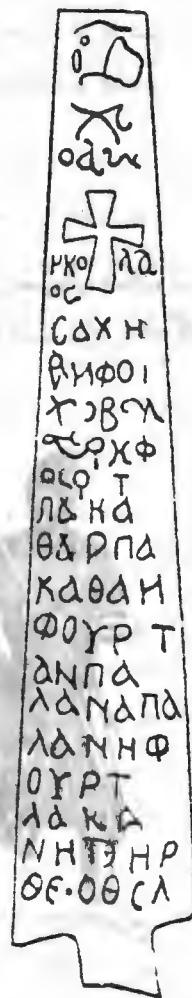 ΝΚΟ ΛΑ
ΟC
CΑΧΗ
ΡΗΦΟΙ
ΟCΟ Τ
ΠΑΚΑ
ΘΑΡΠΑ
ΚΑΘΑΗ
ΦΟΥΡ Τ
ΑΝΠΑ
ΛΑΝΑΠΑ
ΛΑΝΗΦ
ΟΥΡΤ
ΛΑΚΑ
ΝΗ ΗΡ
ΘΕ·ΟΘCΛ